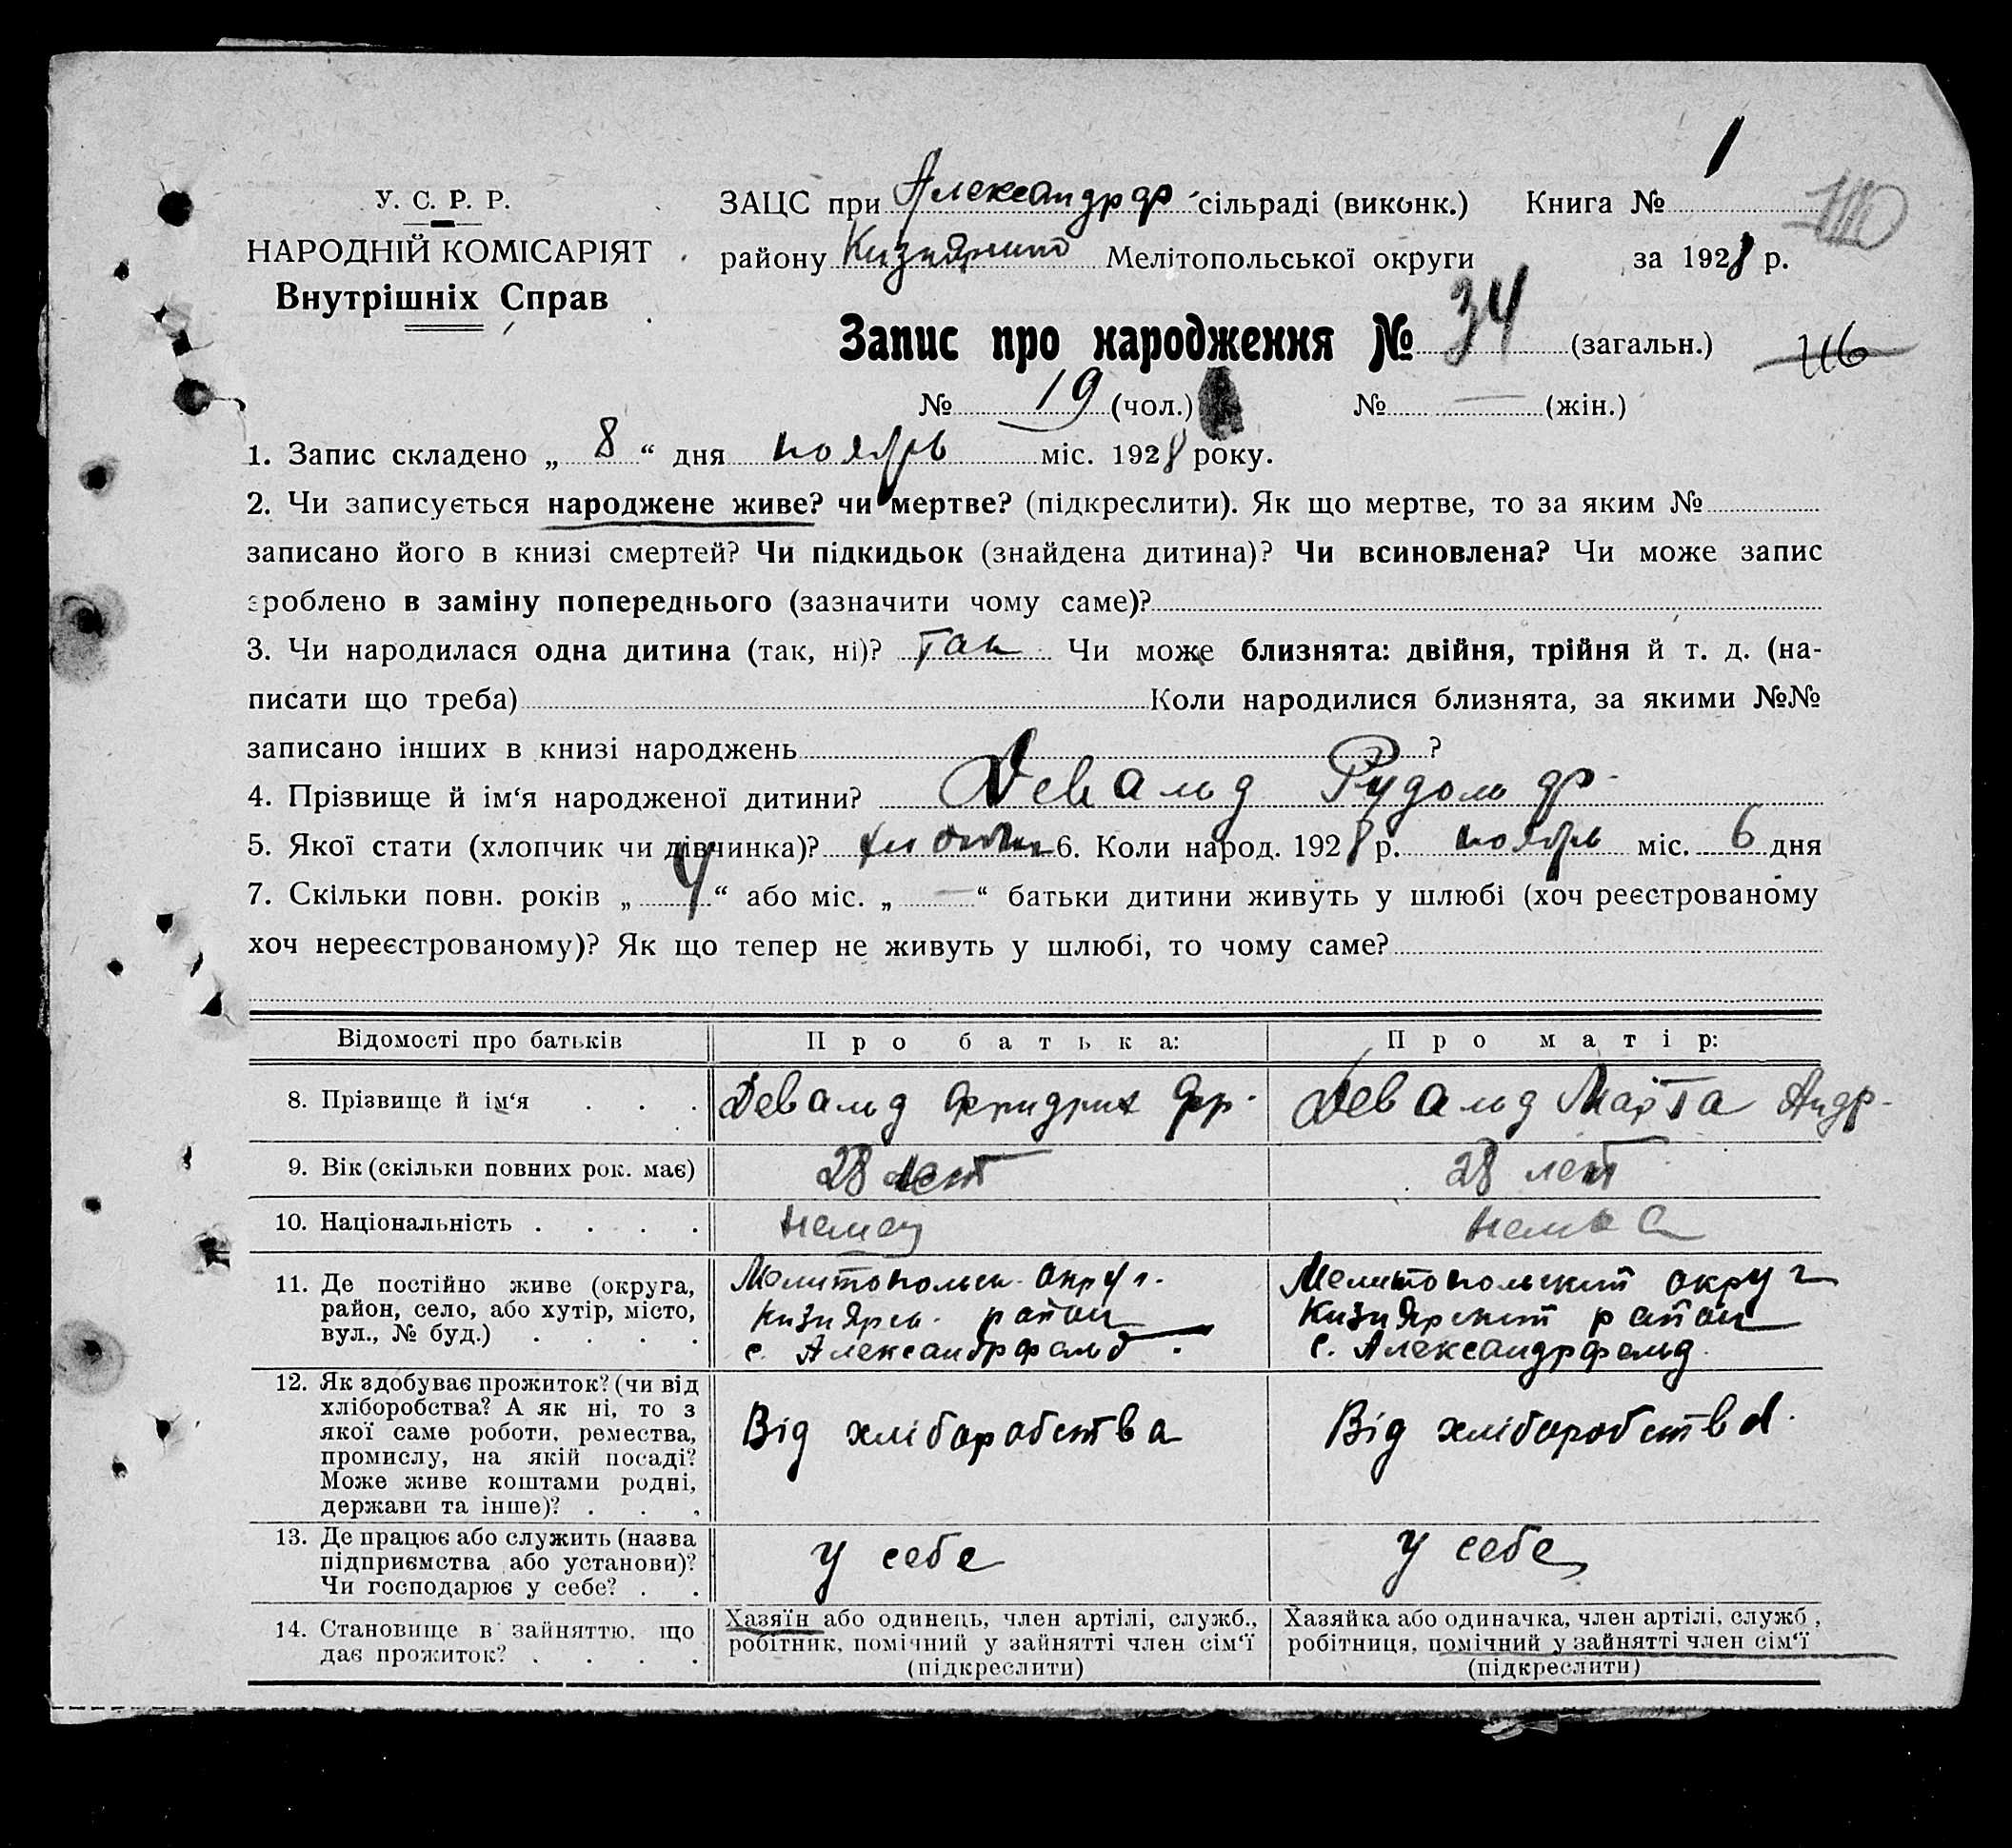 1
У. С. Р. Р.
НАРОДНІЙ КОМІСАРІЯТ
Внутрішніх Справ
ЗАЦС при Александрф сільраді (виконк.) Книга №
району Мелітопольської округи за 1928 р.
Запис про народження № 34 (загальн.) 116
№ 19 (чол.) № — (жін.)
1. Запис складено „ 8 “ дня ноябрь міс. 1928 року.
2. Чи записується народжене живе? чи мертве? (підкреслити). Як що мертве, то за яким №
записано його в книзі смертей? Чи підкидьок (знайдена дитина)? Чи всиновлена? Чи може запис
зроблено в заміну попереднього (зазначити чому саме)?
3. Чи народилася одна дитина (так, ні)? Так Чи може близнята: двійня, трійня й т. д. (на-
писати що треба) Коли народилися близнята, за якими №№
записано інших в книзі народжень ?
4. Прізвище й ім‘я народженої дитини? Девальд Рудольф
5. Якої стати (хлопчик чи дівчинка)? 6. Коли народ. 1928 р. ноябрь міс. 6 дня
7. Скільки повн. років „ 4 “ або міс. „ — “ батьки дитини живуть у шлюбі (хоч реєстрованому
хоч нереєстрованому)? Як що тепер не живуть у шлюбі, то чому саме?
Відомості про батьків Про батька: Про матір:
8. Прізвище й ім‘я . . . Девальд Фридрих Фр. Девальд Марта Андр.
9. Вік (скільки повних рок. має) 28 лет 28 лет
10. Національність . . . . немец немка
11. Де постійно живе (округа,
район, село, або хутір, місто,
вул., № буд.) . . . .
Мелитопольск. округ.
Кизиярск. район
с. Александрфельд.
Мелитопольский округ
Кизиярский район
с. Александрфельд.
12. Як здобуває прожиток? (чи від
хліборобства? А як ні, то з
якої саме роботи, ремества,
промислу, на якій посаді?
Може живе коштами родні,
держави та інше)? . . .
Від хліборобства
Від хліборобства.
13. Де працює або служить (назва
підприємства або установи)?
Чи господарює у себе? . .
у себе
у себе
14. Становище в зайняттю, що
дає прожиток? . . . .
Хазяїн або одинець, член артілі, служб.,
робітник, помічний у зайнятті член сім‘ї
(підкреслити)
Хазяйка або одиначка, член артілі, служб.,
робітниця, помічний у зайнятті член сім‘ї
(підкреслити)